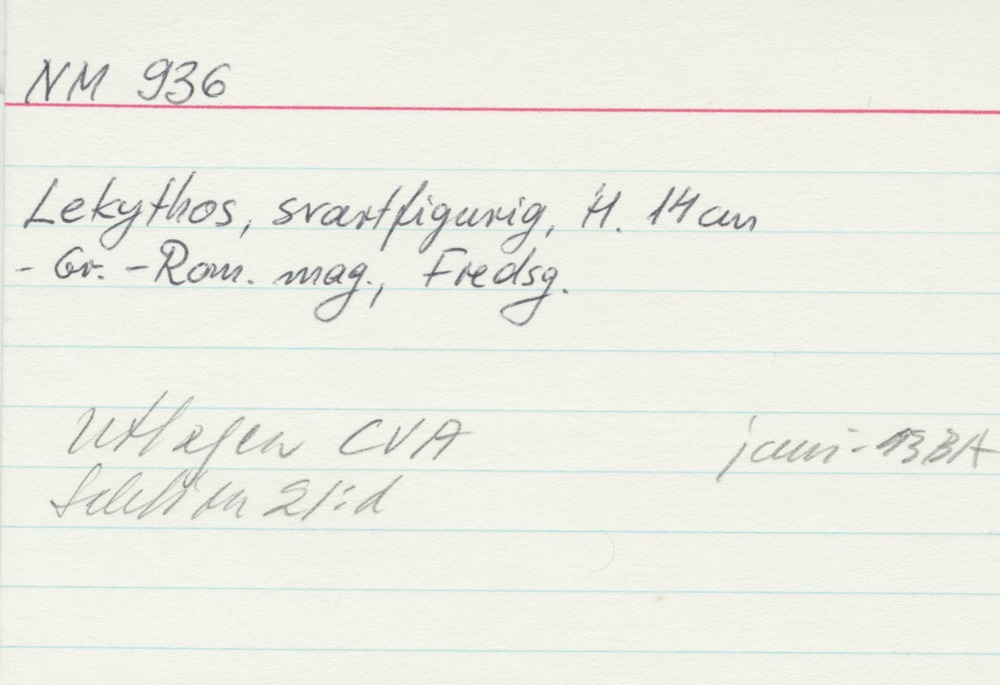 NM 936
Lekythos, svartfigurig, H. 14 cm
- Gr. - Rom. mag., Fredsg.
Uttagen CVA
Sektion 21:d